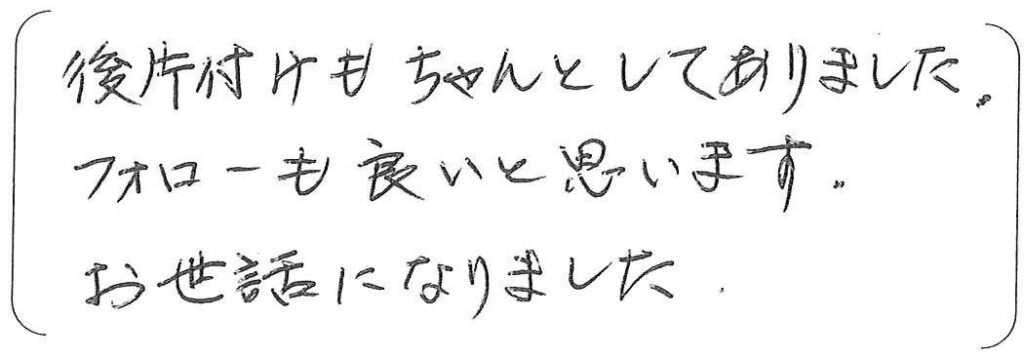 後片付けもちゃんとしてありました。
フォローも良いと思います。
お世話になりました.